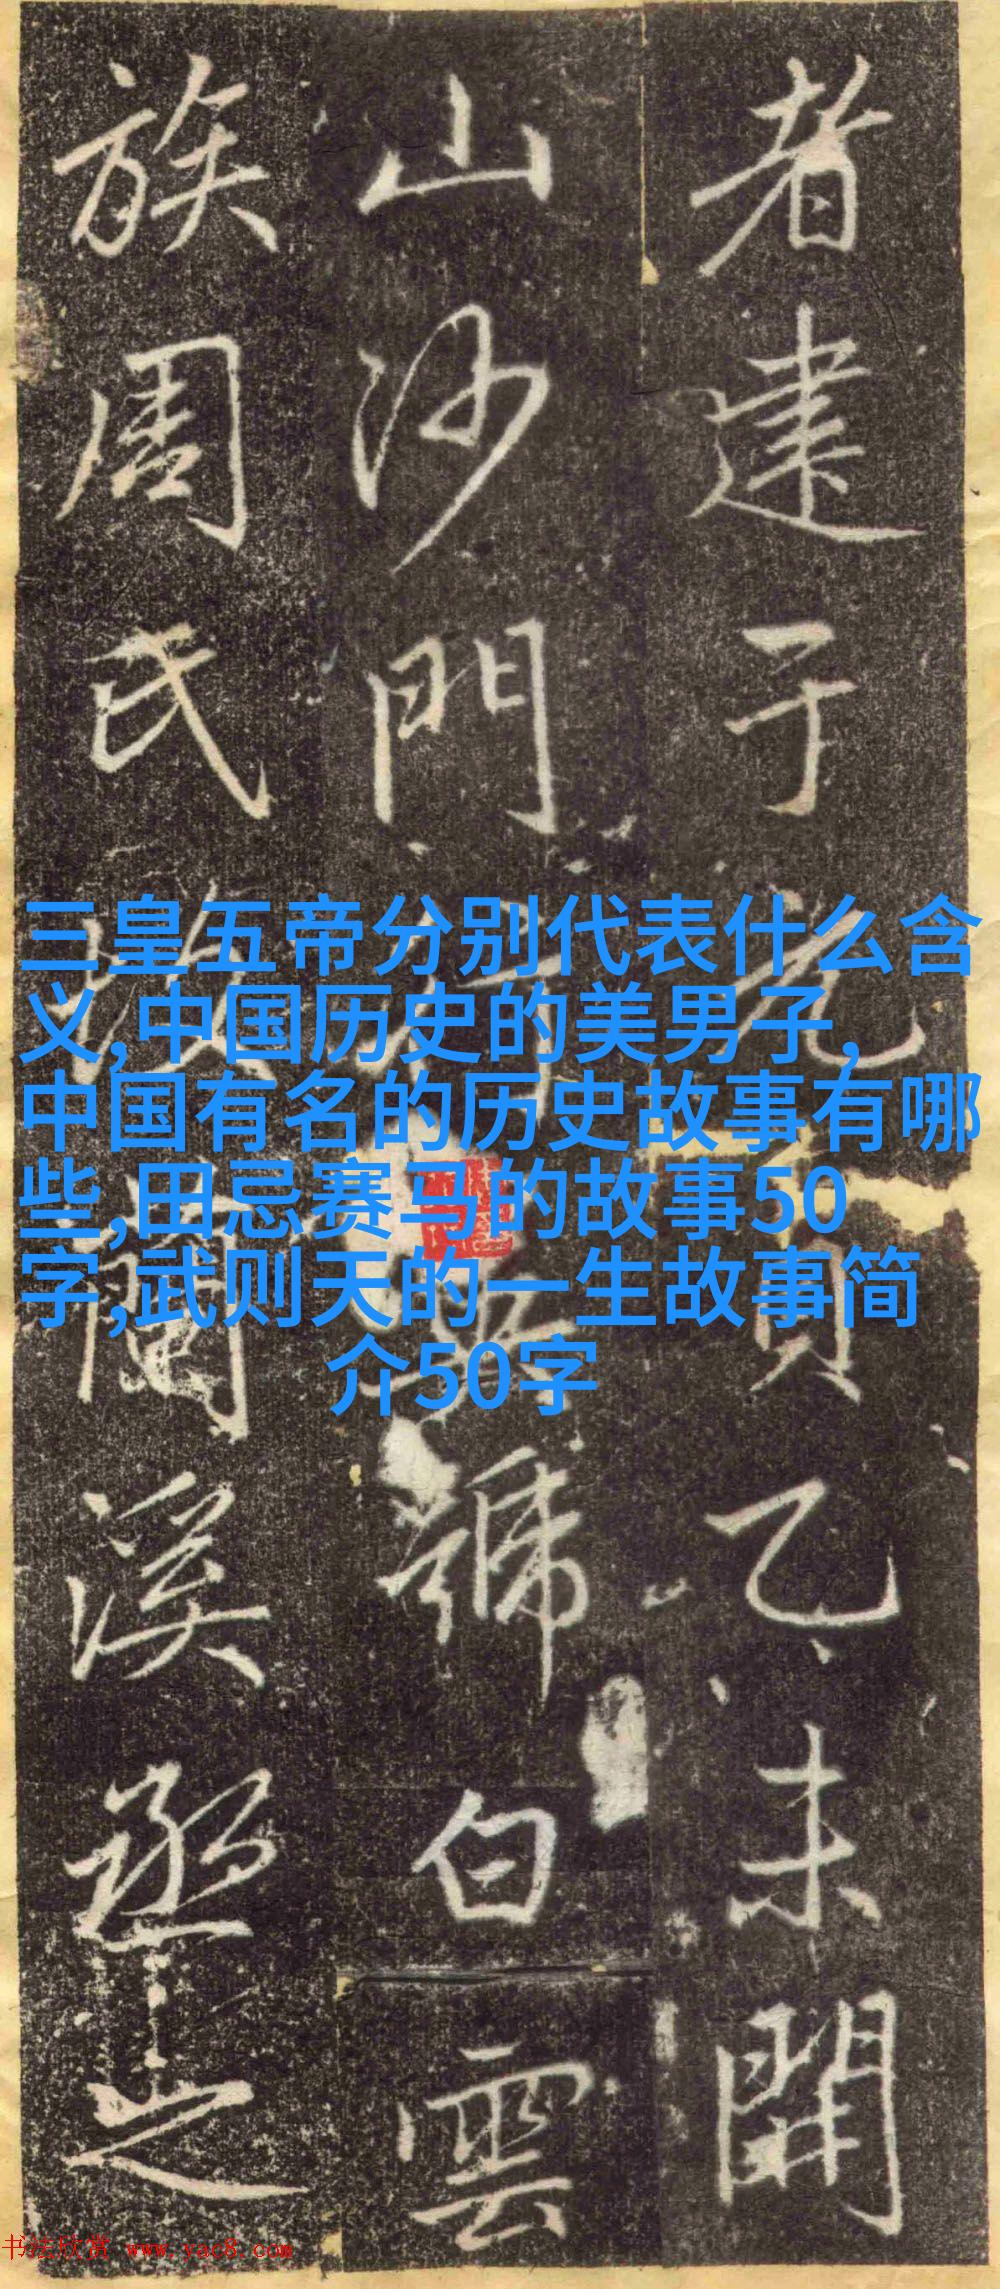 者建于元貞乙未開
山沙門行號白雲
族周氏蘭溪丞之
三皇五帝分别代表什么含
义,中国历史的美男子,
中国有名的历史故事有哪
些,田忌赛马的故事50
字,武则天的一生故事简
介50字
书法欣赏 www.yac8.com